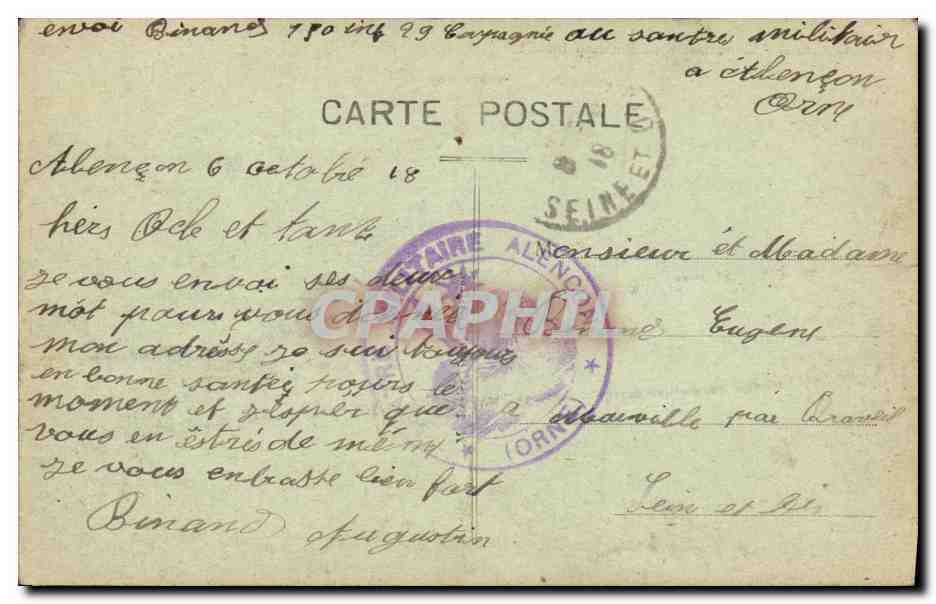 envoi Binand 150 inf 29 Compagnie au santre militair
a Alençon
Orne
CARTE POSTALE
8 18
SEINE ET O
Alençon 6 octobre 18
hers Ocle et tante
je vous envoi ses deux
mot pour vous
mon adrèsse je sui toujours
en bonne santéz pours le
moment et j'éspér que
vous en êstrés de même
je vous enbrasse bien fort
Binand Augustin
TAIRE ALENÇON
(ORNE)
CPAPHIL
Monsieur ét Madame
Eugene
a Mainville par Draveil
Sein et